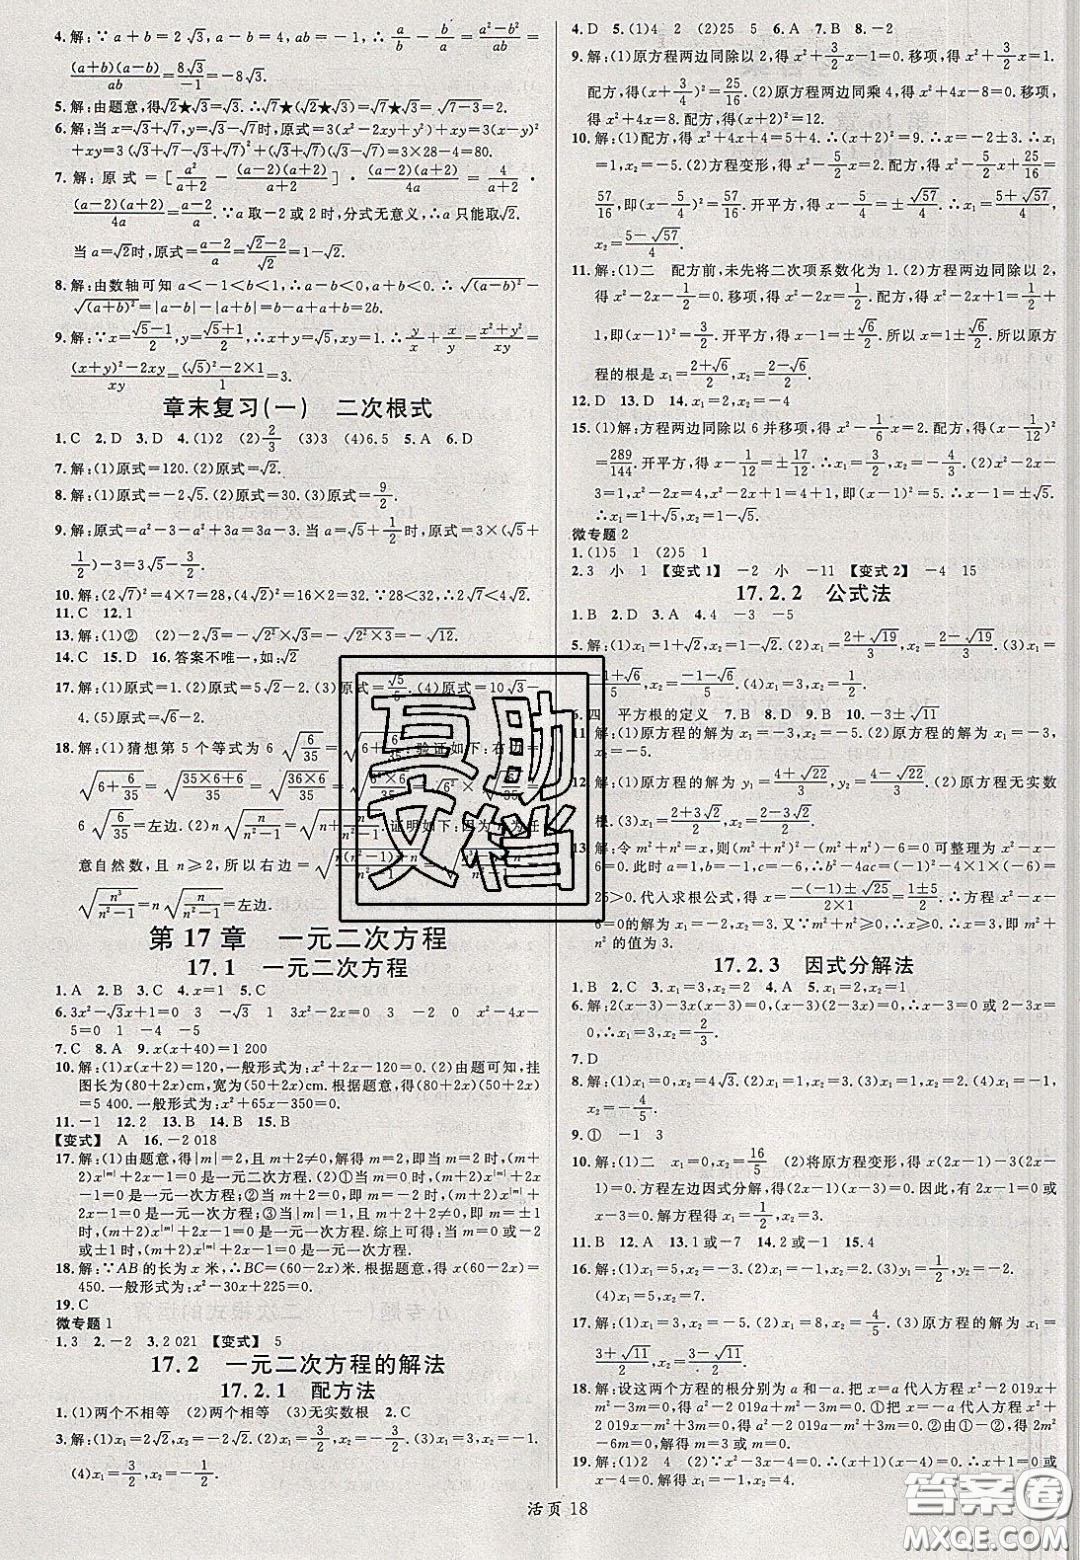 4.解:∵a+b=2√3,ab=-1,∴a/b-b/a=(a²-b²)/ab=
(a+b)(a-b)/ab=8√3/-1=-8√3.
5.解:由题意,得√2★√3=√3.∴√7★(√2★√3)=√7★√3=√(7-3)=2.
6.解:当x=√3+√7,y=√3-√7时,原式=3(x²-2xy+y²)+xy=3(x-y)²
+xy=3(√3+√7-√3+√7)²+(√3+√7)(√3-√7)=3×28-4=80.
7.解:原式=[a²/(a+2)-(a-2)(a+2)/(a+2)]·(a-2)(a+2)/4a=4/(a+2)·
(a-2)(a+2)/4a=(a-2)/a.∵a取-2或2时,分式无意义,∴a只能取√2.
当a=√2时,原式=(a-2)/a=(√2-2)/√2=1-√2.
8.解:由数轴可知a<-1<b<1,∴a-b<0,a+b<0.∴√(a-b)²-
√(a+b)²=|a-b|-|a+b|=b-a+a+b=2b.
9.解:∵x=(√5-1)/2,y=(√5+1)/2,∴x+y=√5,xy=1.∴y/x+x/y=(x²+y²)/xy=
((x+y)²-2xy)/xy=((√5)²-2×1)/1=3.
章末复习(一) 二次根式
1.C 2.D 3.D 4.(1)2 (2)2/3 (3)3 (4)6.5 5.A 6.D
7.解:(1)原式=120.(2)原式=√2.
8.解:(1)原式=-2√5.(2)原式=30.(3)原式=9/2.
9.解:原式=a²-3-a²+3a=3a-3.当a=√5+1/2时,原式=3×(√5+
1/2)-3=3√5-3/2.
10.解:(2√7)²=4×7=28,(4√2)²=16×2=32.∵28<32,∴2√7<4√2.
11.C 12.1
13.解:(1)② (2)-2√3=-√2²×√3=-√(2²×3)=-√12.
14.C 15.D 16.答案不唯一,如:√2
17.解:(1)原式=1.(2)原式=5√2-2.(3)原式=√5/5.(4)原式=10√3-
4.(5)原式=√6-2.
18.解:(1)猜想第5个等式为6√(6/35)=√(6+6/35).验证如下:右边=
√(6+6/35)=√((35×6+6)/35)=√((36×6)/35)=
6√(6/35)=左边.(2)n√(n/(n²-1))=√(n+n/(n²-1)).证明如下:因为n为任
意自然数,且n≥2,所以右边=√((n(n²-1)+n)/(n²-1))=
√(n³/(n²-1))=n√(n/(n²-1))=左边.
第17章 一元二次方程
17.1 一元二次方程
1.A 2.B 3.C 4.x=1 5.C
6.3x²-√3x+1=0 3 -√3 1 3x²-2x=0 3 -2 0 x²-4x-
5=0 1 -4 -5
7.C 8.A 9.x(x+40)=1 200
10.解:(1)x(x+2)=120,一般形式为:x²+2x-120=0.(2)由题可知,挂
图长为(80+2x)cm,宽为(50+2x)cm.根据题意,得(80+2x)(50+2x)
=5 400.一般形式为:x²+65x-350=0.
11.-1 12.2 13.B 14.B 15.B
【变式】 A 16.-2 018
17.解:(1)由题意,得|m|=2,且m+2≠0,解得m=2,即当m=2时,(m+2)x|m|
+2x-1=0是一元二次方程.(2)由题意,得①当m+2≠0,且|m|=1时,(m+2)x|m|+2x
-1=0是一元一次方程;②当m+2=0,即m=-2时,(m+2)x|m|+
2x-1=0是一元一次方程;③当|m|=0,且m+2≠0,即m=±1
时,(m+2)x|m|+2x-1=0是一元一次方程.综上可得:当m=0或-2
或±1时,(m+2)x|m|+2x-1=0是一元一次方程.
18.解:∵AB的长为x米,∴BC=(60-2x)米.根据题意,得x(60-2x)=
450.一般形式为:x²-30x+225=0.
19.C
微专题1
1.3 2.-2 3.2 021 【变式】 5
17.2 一元二次方程的解法
17.2.1 配方法
1.(1)两个不相等 (2)两个相等 (3)无实数根 2.C
3.解:(1)x₁=2√2,x₂=-2√2.(2)x₁=1/3,x₂=-1/3.(3)x₁=1,x₂=-3.
(4)x₁=3/2,x₂=-1/2.
4.D 5.(1)4 2 (2)25 5 6.A 7.B 8.-2
9.解:(1)原方程两边同除以2,得x²+3/2x-1/2=0.移项,得x²+3/2x=1/2.
配方,得(x+3/4)²=25/16.(2)原方程两边同乘4,得x²+4x-8=0.移项,
得x²+4x=8.配方,得(x+2)²=12.
10.解:(1)配方,得x²+4x+4=5+4.∴(x+2)²=9.∴x=-2±3.
∴x₁=1,x₂=-5.(2)方程变形,得x²-5/2x=2.配方,得x²-5/2x+25/16=
57/16,即(x-5/4)²=57/16.开平方,得x-5/4=±√57/4.∴x₁=(5+√57)/4,
x₂=(5-√57)/4.
11.解:(1)二 配方前,未先将二次项系数化为1.(2)方程两边同除以2,
得x²-2x-1/2=0.移项,得x²-2x=1/2.配方,得x²-2x+1=1/2+
1,即(x-1)²=3/2.开平方,得x-1=±√6/2.所以x=1±√6/2.所以原方
程的根是x₁=(2+√6)/2,x₂=(2-√6)/2.
12.D 13.D 14.x₁=2,x₂=-4
15.(1)解:方程两边同除以6并移项,得x²-1/6x=2.配方,得(x-1/12)²
=289/144.开平方,得x-1/12=±17/12.
微专题2
1.(1)5 1 (2)5 1
2.3 小 1 【变式1】 -2 小 -11 【变式2】 -4 15
17.2.2 公式法
1.B 2.D 3.A 4.4 -3 -5
5.解:(1)x₁=1+√2,x₂=1-√2.(2)x₁=(2+√19)/3,x₂=(2-√19)/3.(3)x₁
=(-1+√6)/5,x₂=(-1-√6)/5.(4)x₁=2,x₂=1/2.
6.四 平方根的定义 7.B 8.D 9.B 10.-3±√11
11.解:(1)原方程的解为x₁=-3,x₂=-2.(2)原方程的解为x₁=-3,
x₂=-5.
12.解:(1)原方程的解为y₁=(4+√22)/3,y₂=(4-√22)/3.(2)原方程无实数
根.
13.解:令m²+n²=x,则(m²+n²)²-(m²+n²)-6=0可整理为x²-x-6
=0.此时a=1,b=-1,c=-6.∴b²-4ac=(-1)²-4×1×(-6)=
25>0.代入求根公式,得x=(-(-1)±√25)/(2×1)=(1±5)/2.
6=0的解为x₁=3,x₂=-2.又∵m²≥0,n²≥0,∴m²+n²≥0.∴m²+
n²的值为3.
17.2.3 因式分解法
1.B 2.C 3.x₁=3,x₂=2 4.A 5.x₁=2,x₂=1
6.解:2(x-3)-3x(x-3)=0,(x-3)(2-3x)=0,∴x-3=0或2-3x=
0,∴x₁=3,x₂=2/3.
7.D
8.解:(1)x₁=0,x₂=4√3.(2)x₁=1,x₂=3.(3)x₁=x₂=4.(4)x₁=-1,
x₂=-4/5.
9.① -1 3
10.解:(1)二 x₁=0,x₂=16/5 (2)将原方程变形,得x(2x-1)-3(2x-1)
=0.方程左边因式分解,得(2x-1)(x-3)=0.因此,有2x-1=0或
x-3=0.解方程得x₁=1/2,x₂=3.
11.B 12.A 13.1或-7 14.2 15.4
17.解:(1)原方程的解为x₁=4,x₂=-2.(2)原方程的解为x₁=
(3+√11)/2,x₂=(3-√11)/2.
18.解:设这两个方程的根分别为a和-a.把x=a代入方程x²-2 019x+
19.解:(1)2 4 (2)∵x²-3x-4=0,∴(x-4)(x+1)=0.∴x-4=0
或x+1=0.解得x₁=-1,x₂=4.
活页 18
互助
文档
答案圈
MXQE.COM